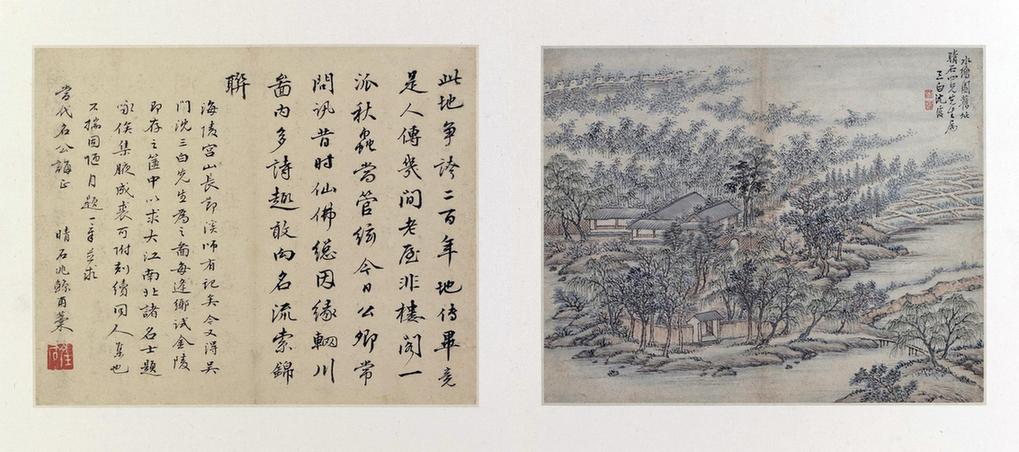 水繪園舊址
晴石四兄先生属
三白沈復
此地争誇二百年地傳畢竟
是人傳幾間老屋非樓閣一
派秋蟲當管絃今日公卿常
問訊昔時仙佛總因緣輞川
啚內多詩趣敢向名流索錦
聯
海陵宮山長節溪師有記矣今又得吳
門沈三白先生為之啚每逢鄉試金陵
即存之篋中以求大江南北諸名士題
俟集腋成裘可附刻續同人集也
不揣固陋自題一章並求
當代名公誨正 晴石兆鯨甫藁